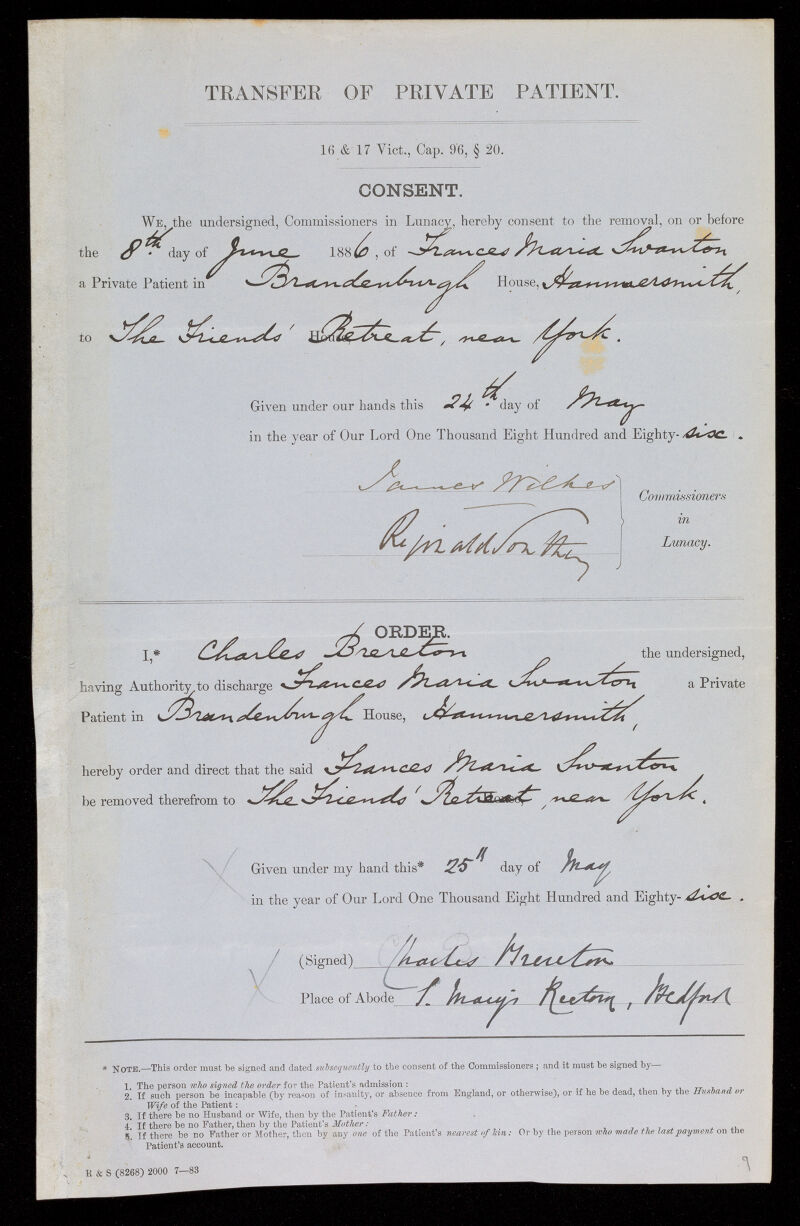 TRANSFER OF PRIVATE PATIENT.
16 & 17 Vict., Cap. 96, § 20.
CONSENT.
WE, the undersigned, Commissioners in Lunacy, hereby consent to the removal, on or before
the 8th. day of June 1886, of Frances Maria Swanton
a Private Patient in Brandenburgh House, Hammersmith,
to The Friends' Retreat, near York.
Given under our hands this 24th. day of May
in the year of Our Lord One Thousand Eight Hundred and Eighty-six.
James Wilkes
Reginald Southey
Commissioners
in
Lunacy.
ORDER.
I,* Charles Brereton the undersigned,
having Authority to discharge Frances Maria Swanton a Private
Patient in Brandenburgh House, Hammersmith,
hereby order and direct that the said Frances Maria Swanton
be removed therefrom to The Friends' Retreat, near York.
Given under my hand this* 25th day of May
in the year of Our Lord One Thousand Eight Hundred and Eighty-six.
(Signed) Charles Brereton
Place of Abode S. Mary's Rectory, Bedford
* NOTE.—This order must be signed and dated subsequently to the consent of the Commissioners; and it must be signed by—
1. The person who signed the order for the Patient's admission:
2. If such person be incapable (by reason of insanity, or absence from England, or otherwise), or if he be dead, then by the Husband or
Wife of the Patient:
3. If there be no Husband or Wife, then by the Patient's Father:
4. If there be no Father, then by the Patient's Mother:
5. If there be no Father or Mother, then by any one of the Patient's nearest of kin: Or by the person who made the last payment on the
Patient's account.
R & S (8268) 2000 7—83
9